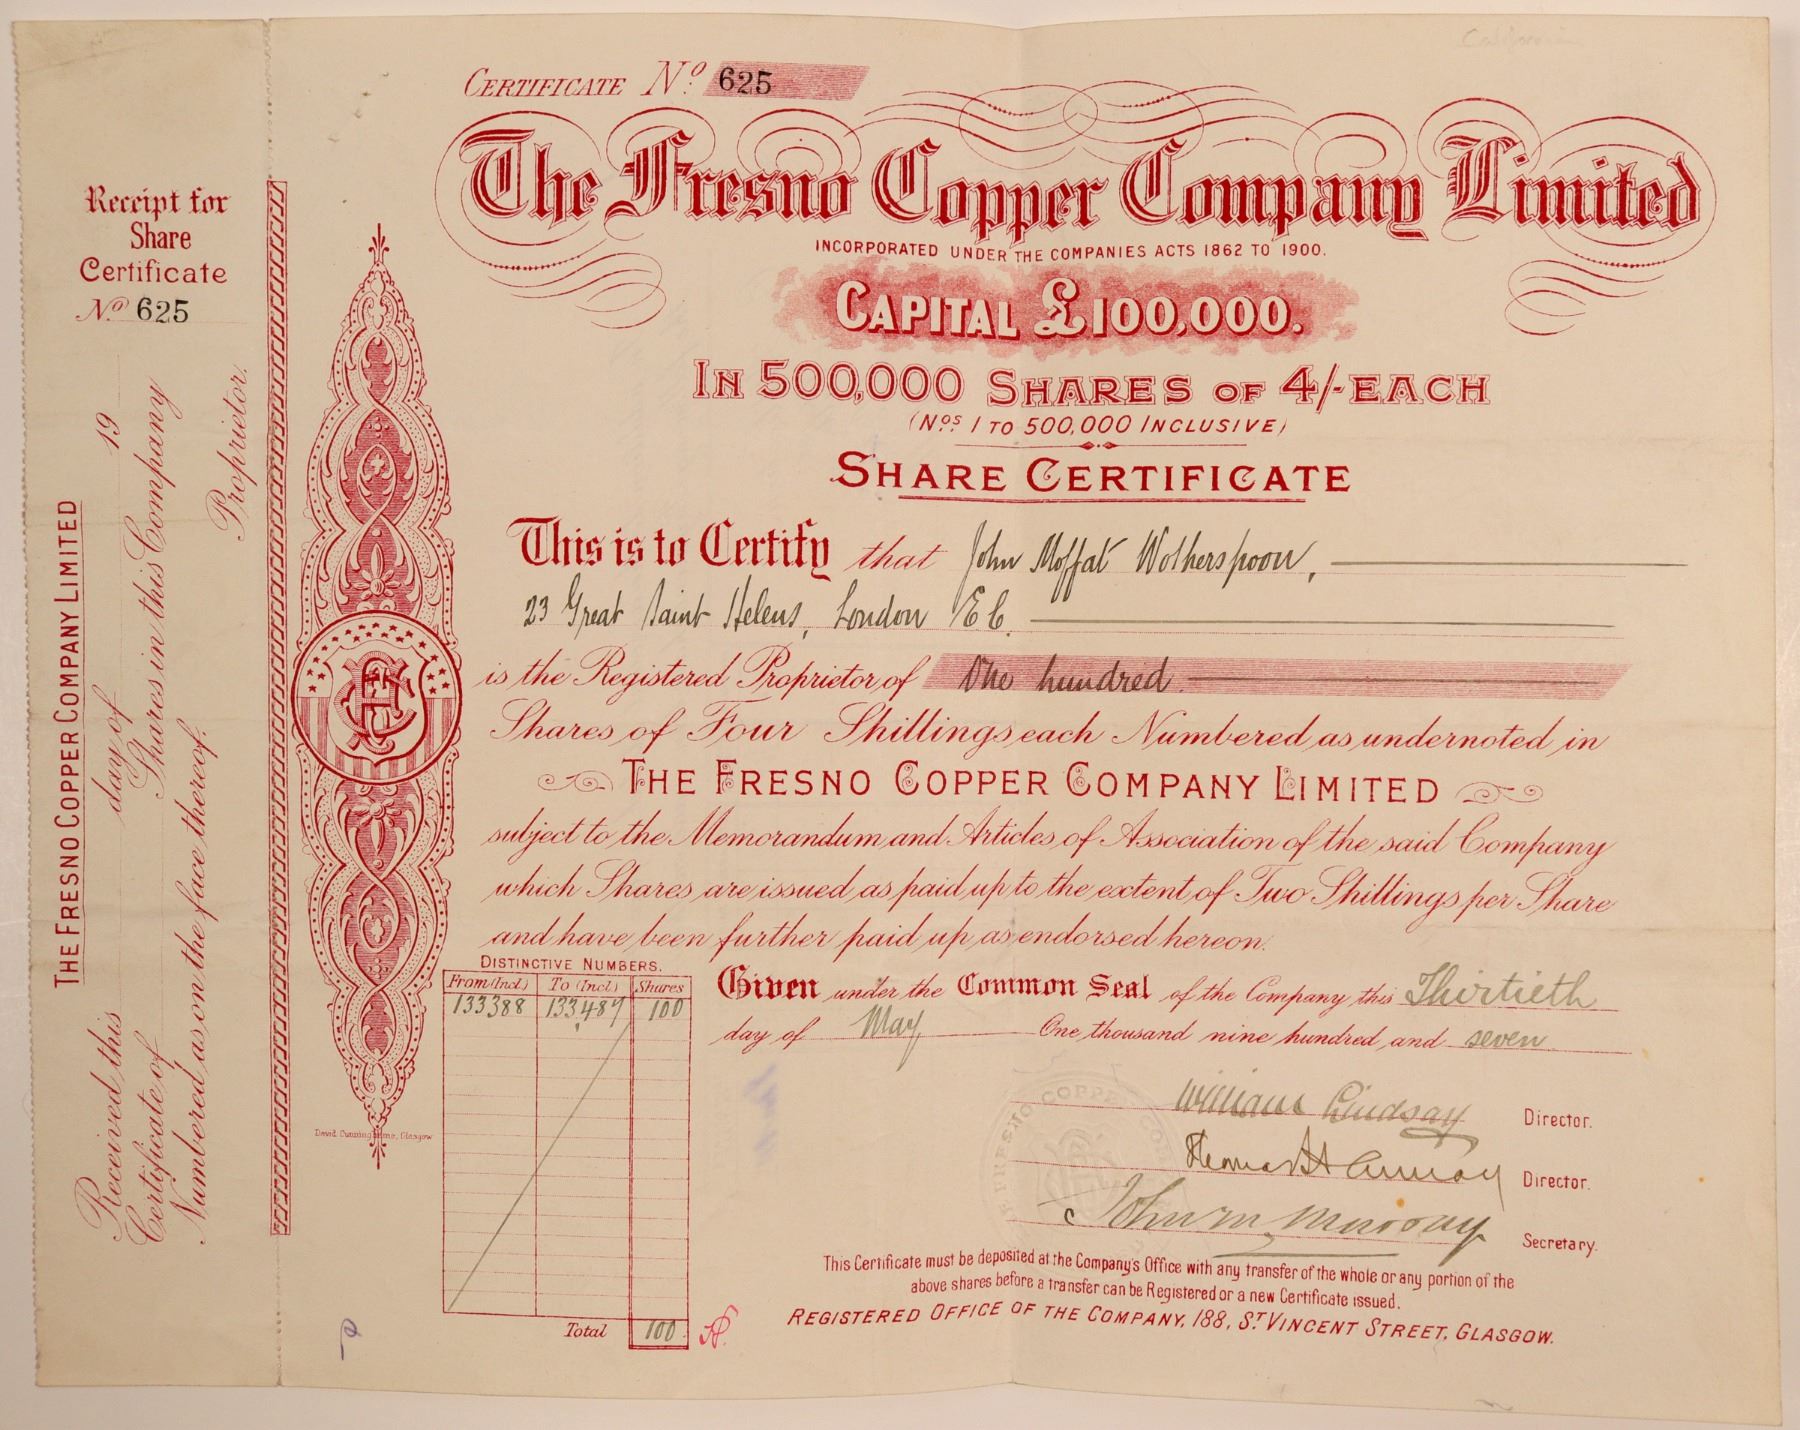 California
CERTIFICATE No. 625
The Fresno Copper Company Limited
INCORPORATED UNDER THE COMPANIES ACTS 1862 TO 1900.
CAPITAL £100,000.
IN 500,000 SHARES OF 4/- EACH
(Nos. 1 TO 500,000 INCLUSIVE)
SHARE CERTIFICATE
This is to Certify that John Moffat Wotherspoon,
23 Great Saint Helens, London E C.
is the Registered Proprietor of One hundred
Shares of Four Shillings each Numbered as undernoted in
THE FRESNO COPPER COMPANY LIMITED
subject to the Memorandum and Articles of Association of the said Company
which Shares are issued as paid up to the extent of Two Shillings per Share
and have been further paid up as endorsed hereon.
DISTINCTIVE NUMBERS.
From (Incl.) To (Incl.) Shares
133388 133,487 100
Total 100
Given under the Common Seal of the Company this Thirtieth
day of May One thousand nine hundred and seven
William Lindsay Director.
Director.
John M Murray Secretary.
This Certificate must be deposited at the Company's Office with any transfer of the whole or any portion of the
above shares before a transfer can be Registered or a new Certificate issued.
REGISTERED OFFICE OF THE COMPANY, 188, ST VINCENT STREET, GLASGOW.
Receipt for
Share
Certificate
No. 625
THE FRESNO COPPER COMPANY LIMITED
Received this day of 19
Certificate of Shares in this Company
Numbered as on the face thereof.
Proprietor.
FCCL
David Cunningham, Glasgow
FRESNO COPPER COM